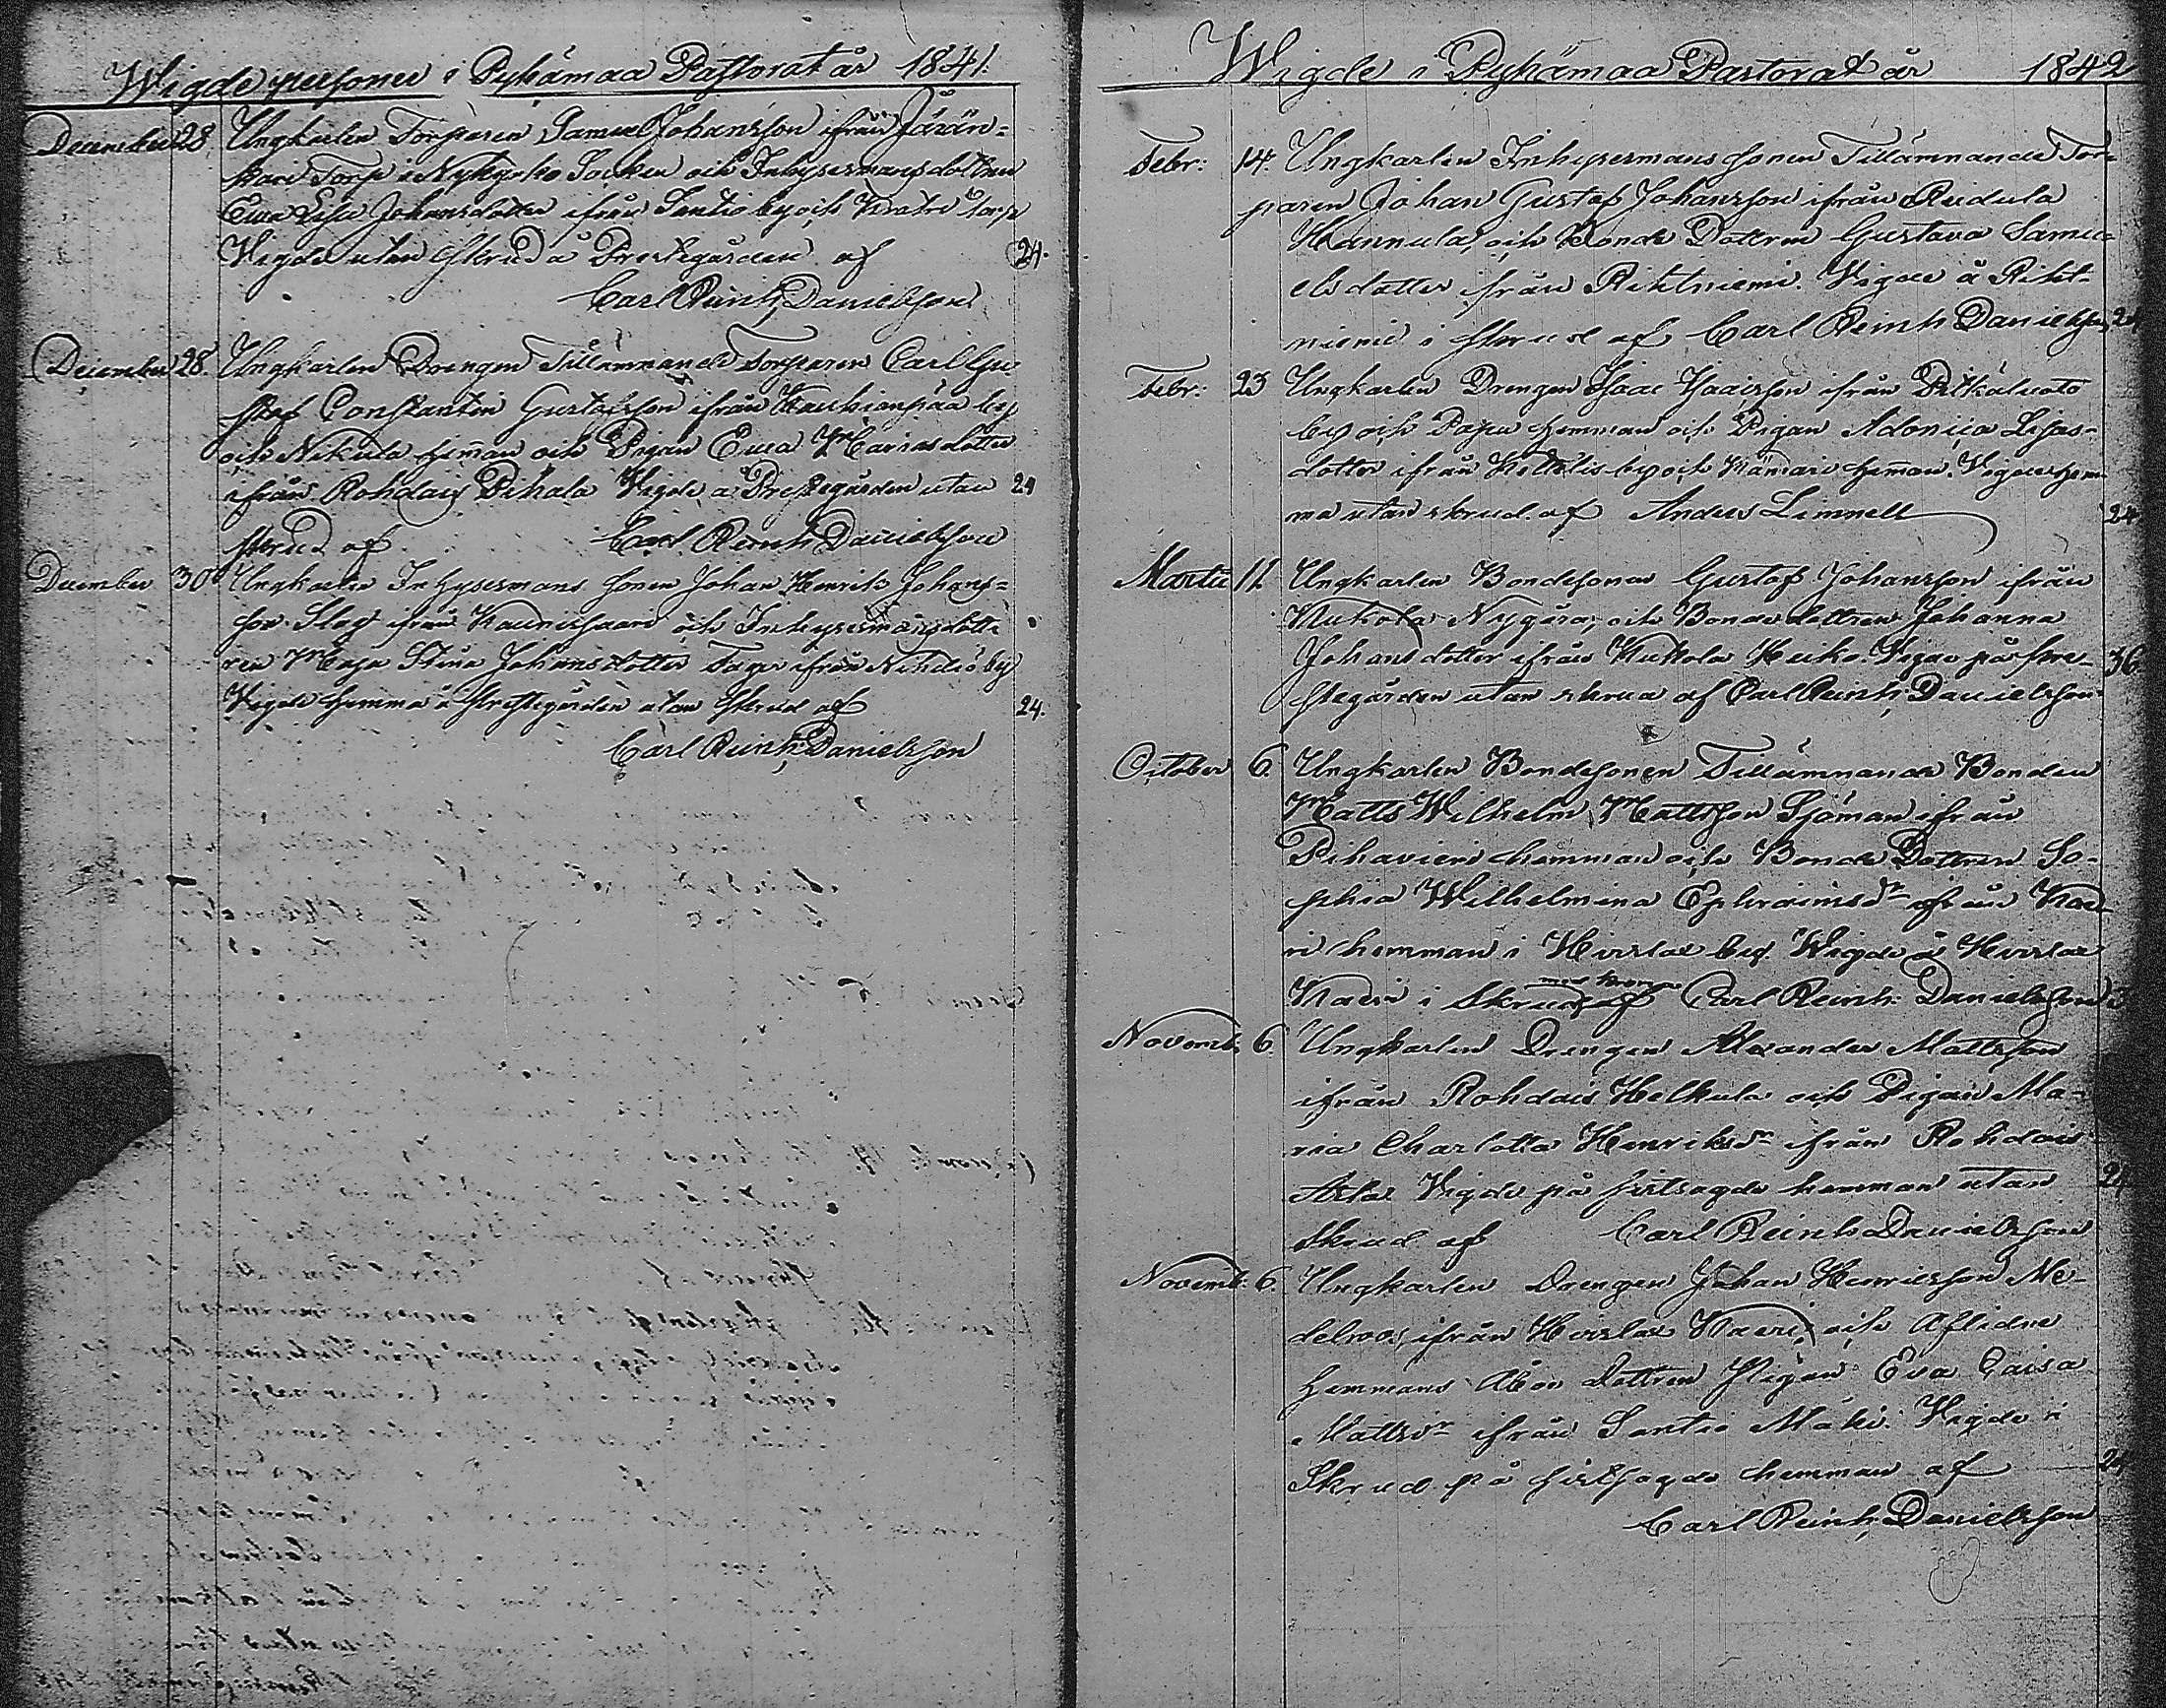 Wigde personer i Pyhämaa Pastorat år 1841.
December 28 Ungkarlen Torparen Samuel Johansson ifrån
skari Torp i Nykyrko Socken och Inhysesmansdottren
Ewa Lisa Johansdotter ifrån Santio by och torp
Vigde utan skrud å Prestegården af 24.
Carl Reinh. Danielsson
December 28. Ungkarlen Drengen Tillämnande Torparen Carl Gu
staf Constantin Gustafsson ifrån Kaukianpää by
och Nikula heman och Pigan Ewa Mariasdotter
ifrån Rohdais Pihala Vigde å Prestegården utan 24
skrud af Carl Reinh Danielsson
December 30 Ungkarlen Inhysesmans sonen Johan Henrik Johans=
son Slag ifrån Kaunisaari och Inhysesmansdott
ren Maja Stina Johansdotter ifrån Nihdiö by
Vigde hemma å Prestegården utan skrud af 24.
Carl Reinh. Danielsson
Wigde i Pyhämaa Pastorat år 1842
Febr: 14. Ungkarlen Inhysesmans sonen Tillämnande Tor=
paren Johan Gustaf Johansson ifrån Reidula
Hannula, och Bonde Dottren Gustava Samu=
elsdotter ifrån Rihtniemi. Vigde å Riht-
niemi i skrud af Carl Reinh Danielsson 24
Febr: 23 Ungkarlen Drengen Isaac Isacsson ifrån Pitkäluoto
by och Papu hemman och Pigan Adonica Lisas-
dotter ifrån Ketelis by och Kämäri heman. Vigde hem
ma utan skrud. af Anders Limnell 24
Martii 11 Ungkarlen Bondesonen Gustaf Johansson ifrån
Kukola Nygård, och Bondedottren Johanna
Johansdotter ifrån Kukola Heiko. Vigde på Pre- 36
stegården utan skrud af Carl Reinh. Danielsson
October 6. Ungkarlen Bondesonen Tillämnande Bonden
Matts Wilhelm Mattsson Sjöman ifrån
Pihavieri hemman och Bonde Dottren So-
phia Wilhelmina Ephraimsdr ifrån Kae
ri hemman i Hirslax by. Wigde å Hirslax
Kaeri i Skrud med krona af Carl Reinh: Danielsson 3
Novemb: 6. Ungkarlen Drengen Alexander Mattsson
ifrån Rohdais Helkula och Pigan Ma-
ria Charlotta Henriksdr ifrån Rohdais
Vigde på sistsagde hemman utan 24
Skrud af Carl Reinh Danielsson
Novemb: 6. Ungkarlen Drengen Johan Henricsson Me-
delroos, ifrån Hirslax Kaeri, och Aflidne
Hemmans Åboe Dottren Pigan Eva Caisa
Mattsdr ifrån Santio Mäki. Vigde i
Skrud på sistsagde hemman af 24
Carl Reinh. Danielsson